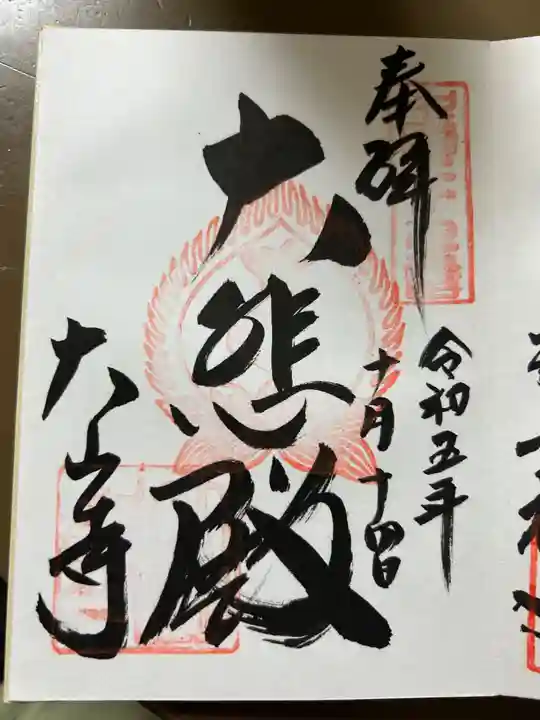 奉拝
令和五年
十月十四日
大悲殿
大山寺